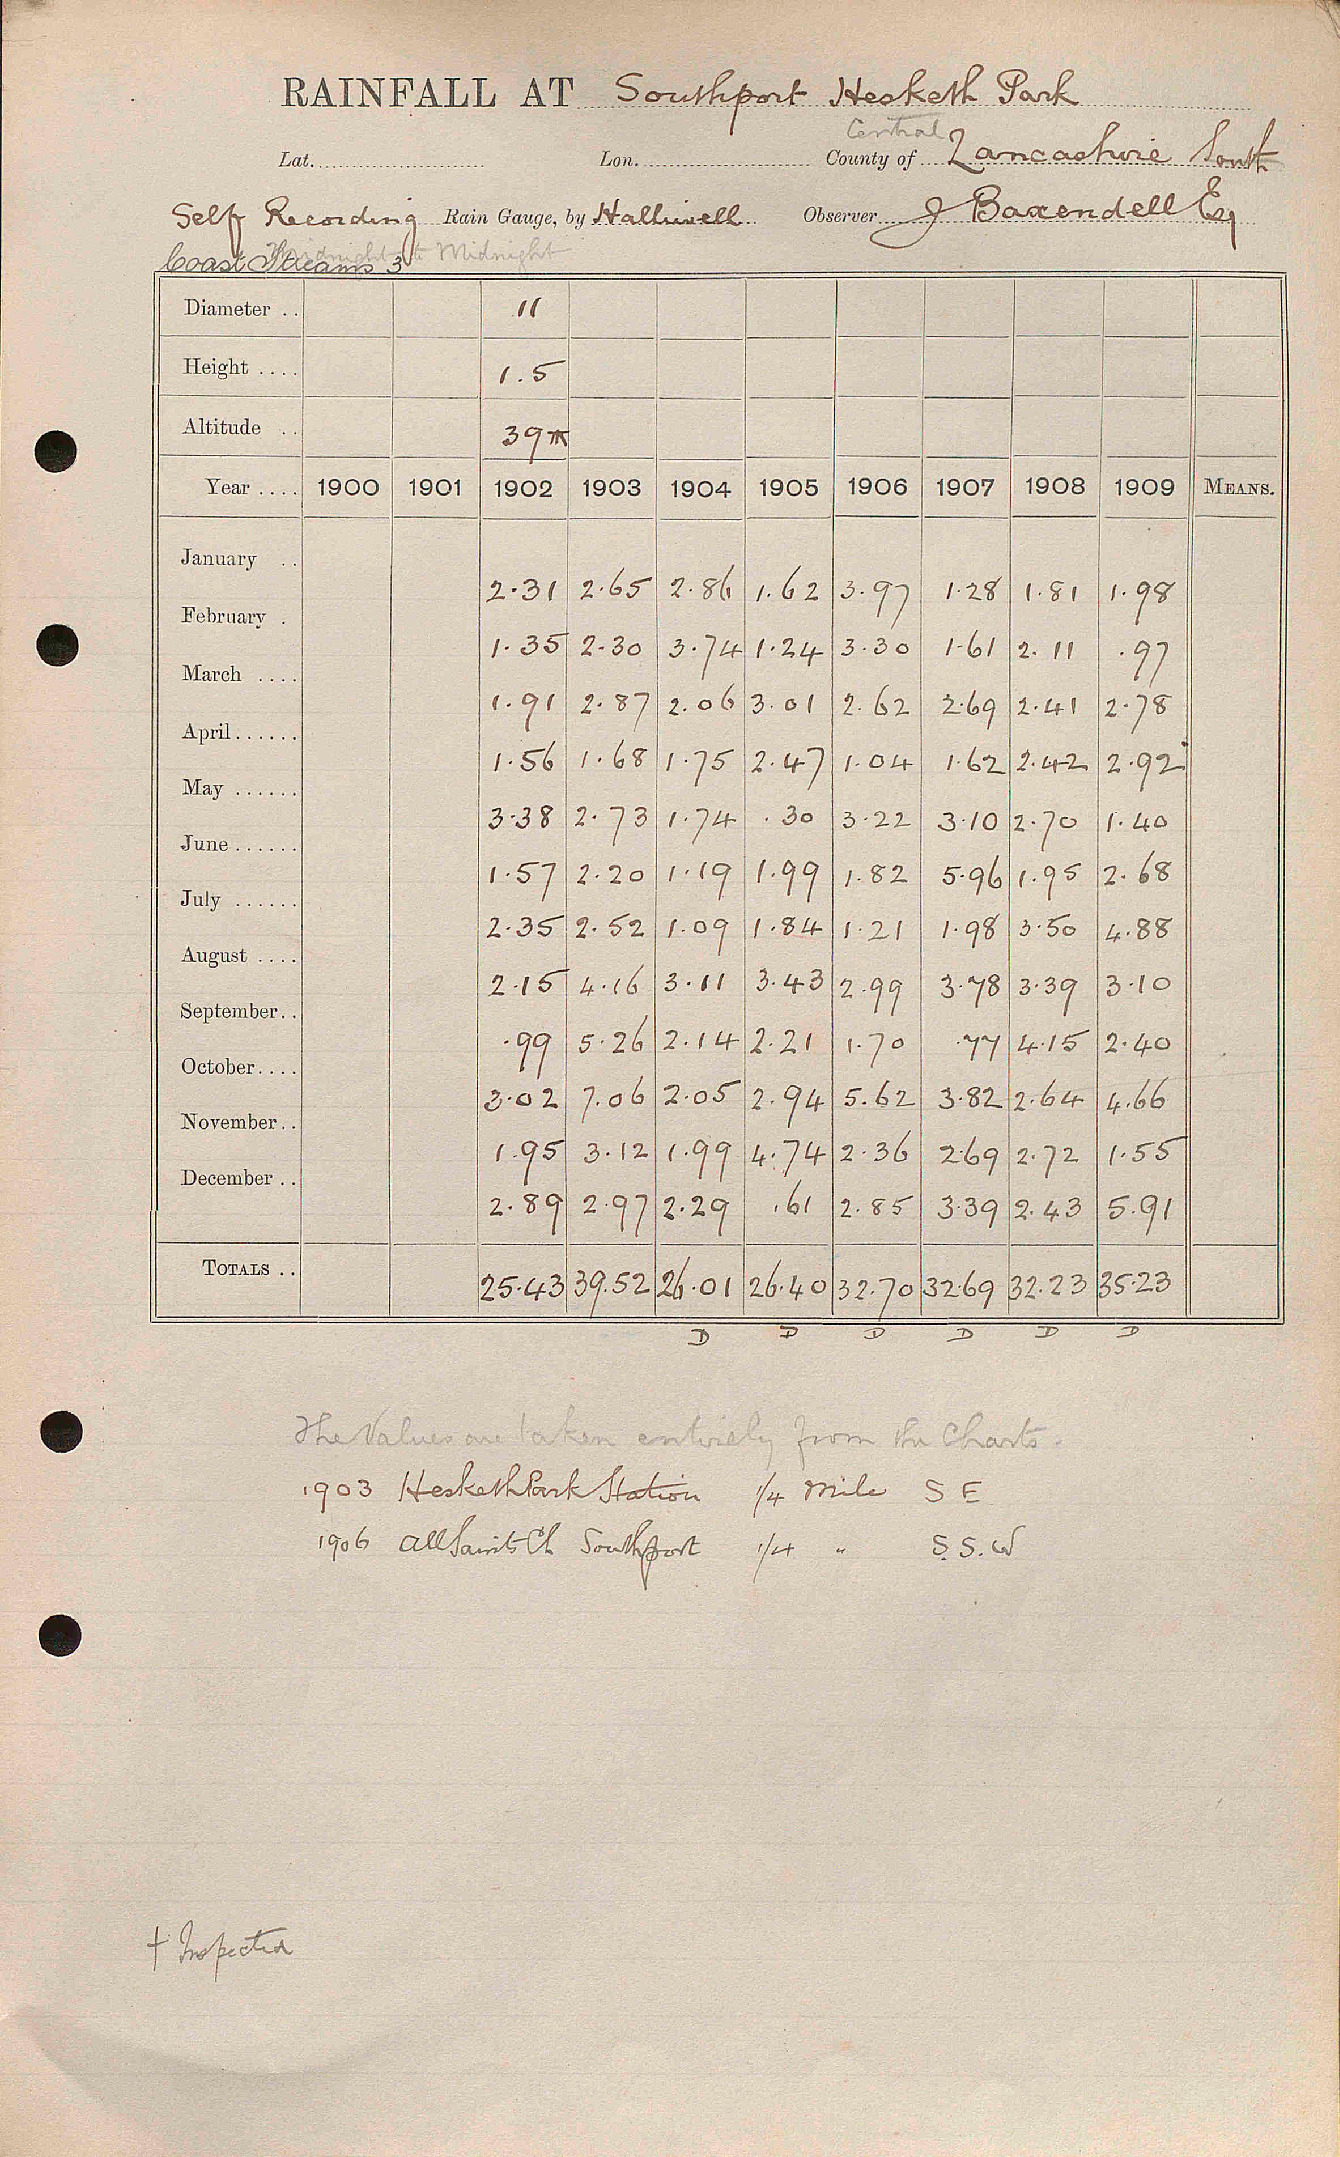 RAINFALL AT Southport Hesketh Park
Central
Lat. Lon. County of Lancashire South
Self Recording Rain Gauge, by Halliwell Observer J Baxendell Esq
Midnight to Midnight
Coast Streams 3
Diameter .. 11
Height .... 1.5
Altitude .. 39
Year .... 1900 1901 1902 1903 1904 1905 1906 1907 1908 1909 MEANS.
January .. 2.31 2.65 2.86 1.62 3.97 1.28 1.81 1.98
February . 1.35 2.30 3.74 1.24 3.30 1.61 2.11 .97
March .... 1.91 2.87 2.06 3.01 2.62 2.69 2.41 2.78
April...... 1.56 1.68 1.75 2.47 1.04 1.62 2.42 2.92
May ...... 3.38 2.73 1.74 .30 3.22 3.10 2.70 1.40
June...... 1.57 2.20 1.19 1.99 1.82 5.96 1.95 2.68
July ...... 2.35 2.52 1.09 1.84 1.21 1.98 3.50 4.88
August .... 2.15 4.16 3.11 3.43 2.99 3.78 3.39 3.10
September.. .99 5.26 2.14 2.21 1.70 .77 4.15 2.40
October.... 3.02 7.06 2.05 2.94 5.62 3.82 2.64 4.66
November.. 1.95 3.12 1.99 4.74 2.36 2.69 2.72 1.55
December .. 2.89 2.97 2.29 .61 2.85 3.39 2.43 5.91
TOTALS .. 25.43 39.52 26.01 26.40 32.70 32.69 32.23 35.23
D D D D D D
The Values are taken entirely from the Charts.
1903 Hesketh Park Station 1/4 Mile S E
1906 All Saints Ch Southport 1/4 " S.S.W
† Inspected